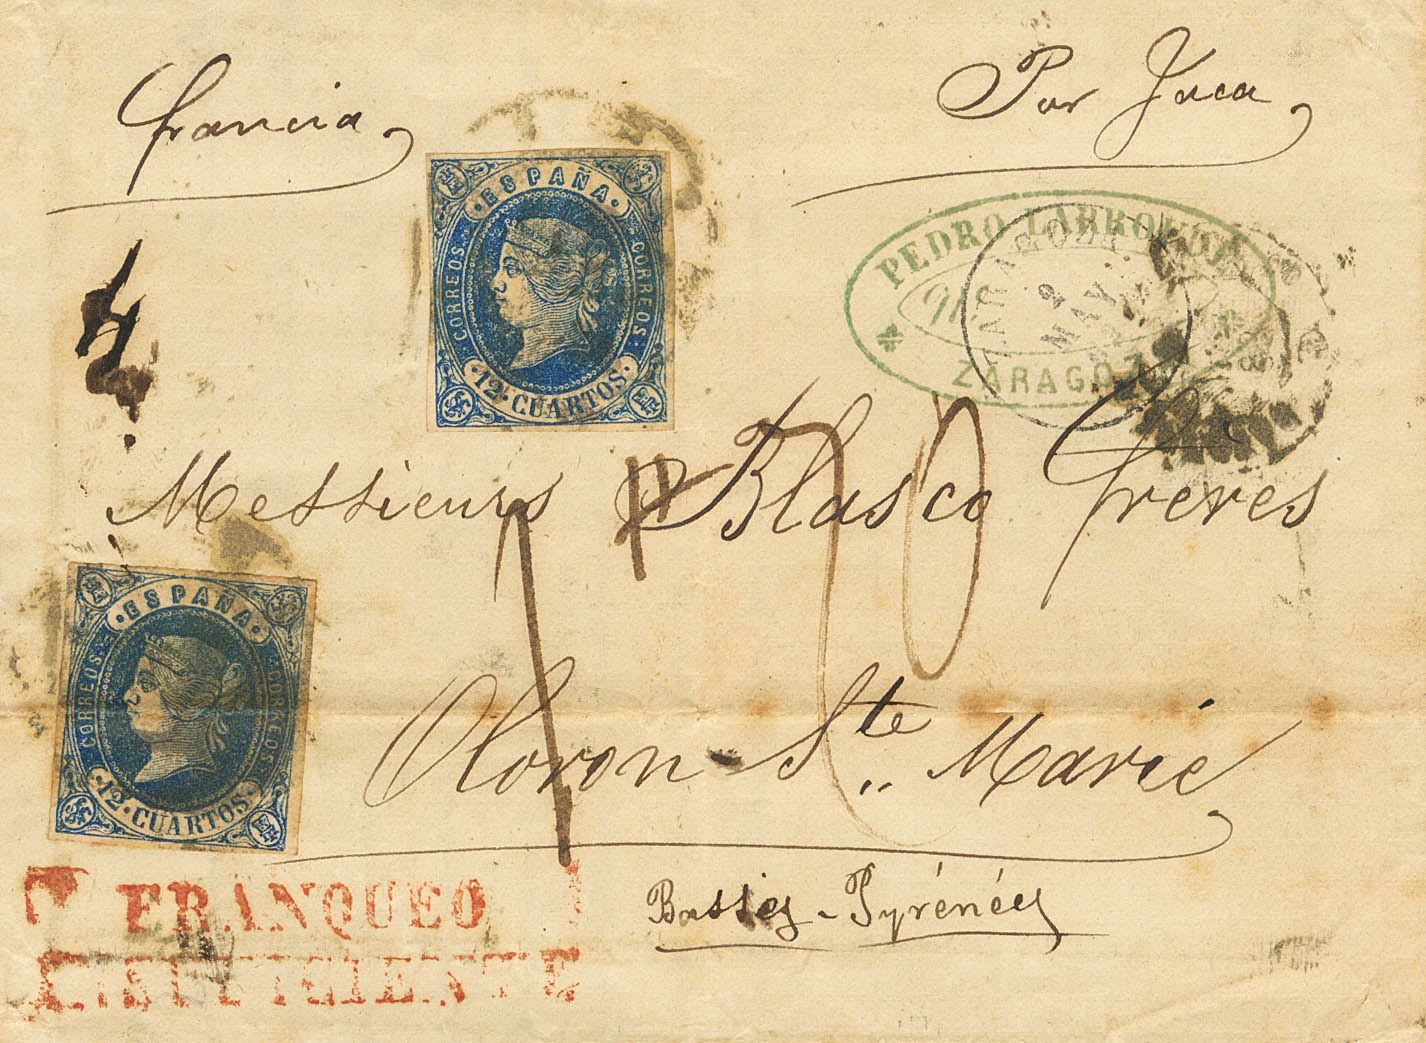 francia
Por Jaca
ESPAÑA
CORREOS
CORREOS
12 CUARTOS
PEDRO
ZARAGOZA
ZARAGOZA
2
MAY
Messieurs Blasco frères
Oloron-Ste Marie
Basses-Pyrénées
ESPAÑA
CORREOS
CORREOS
12 CUARTOS
FRANQUEO
INSUFICIENTE